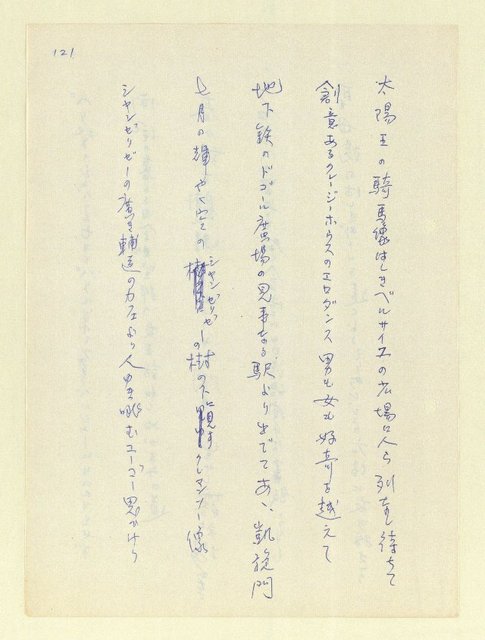 121
太陽王の騎馬像はしきベルサイユの広場に人ら列を待ちて
創意あるクレージーホウスのエロダンス男も女も好奇を越えて
地下鉄のドゴール廣場の見事なる駅より出でてあゝ凱旋門
七月の輝やく空のシャンゼリゼーの樹の下に現すクレマンソー像
シャンゼリゼーの廣き舗道のカフェより人ゆき眺むユーゴー思ひつゝ